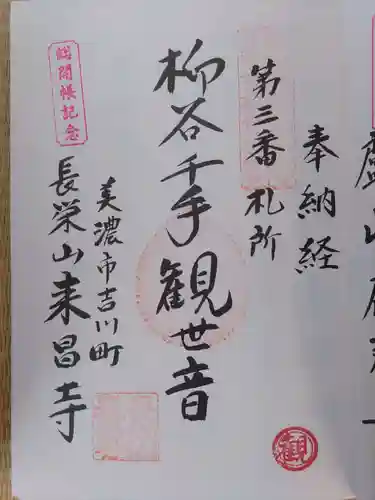 奉納経
第三番札所
柳谷千手観世音
美濃市吉川町
長栄山来昌寺
御開帳記念